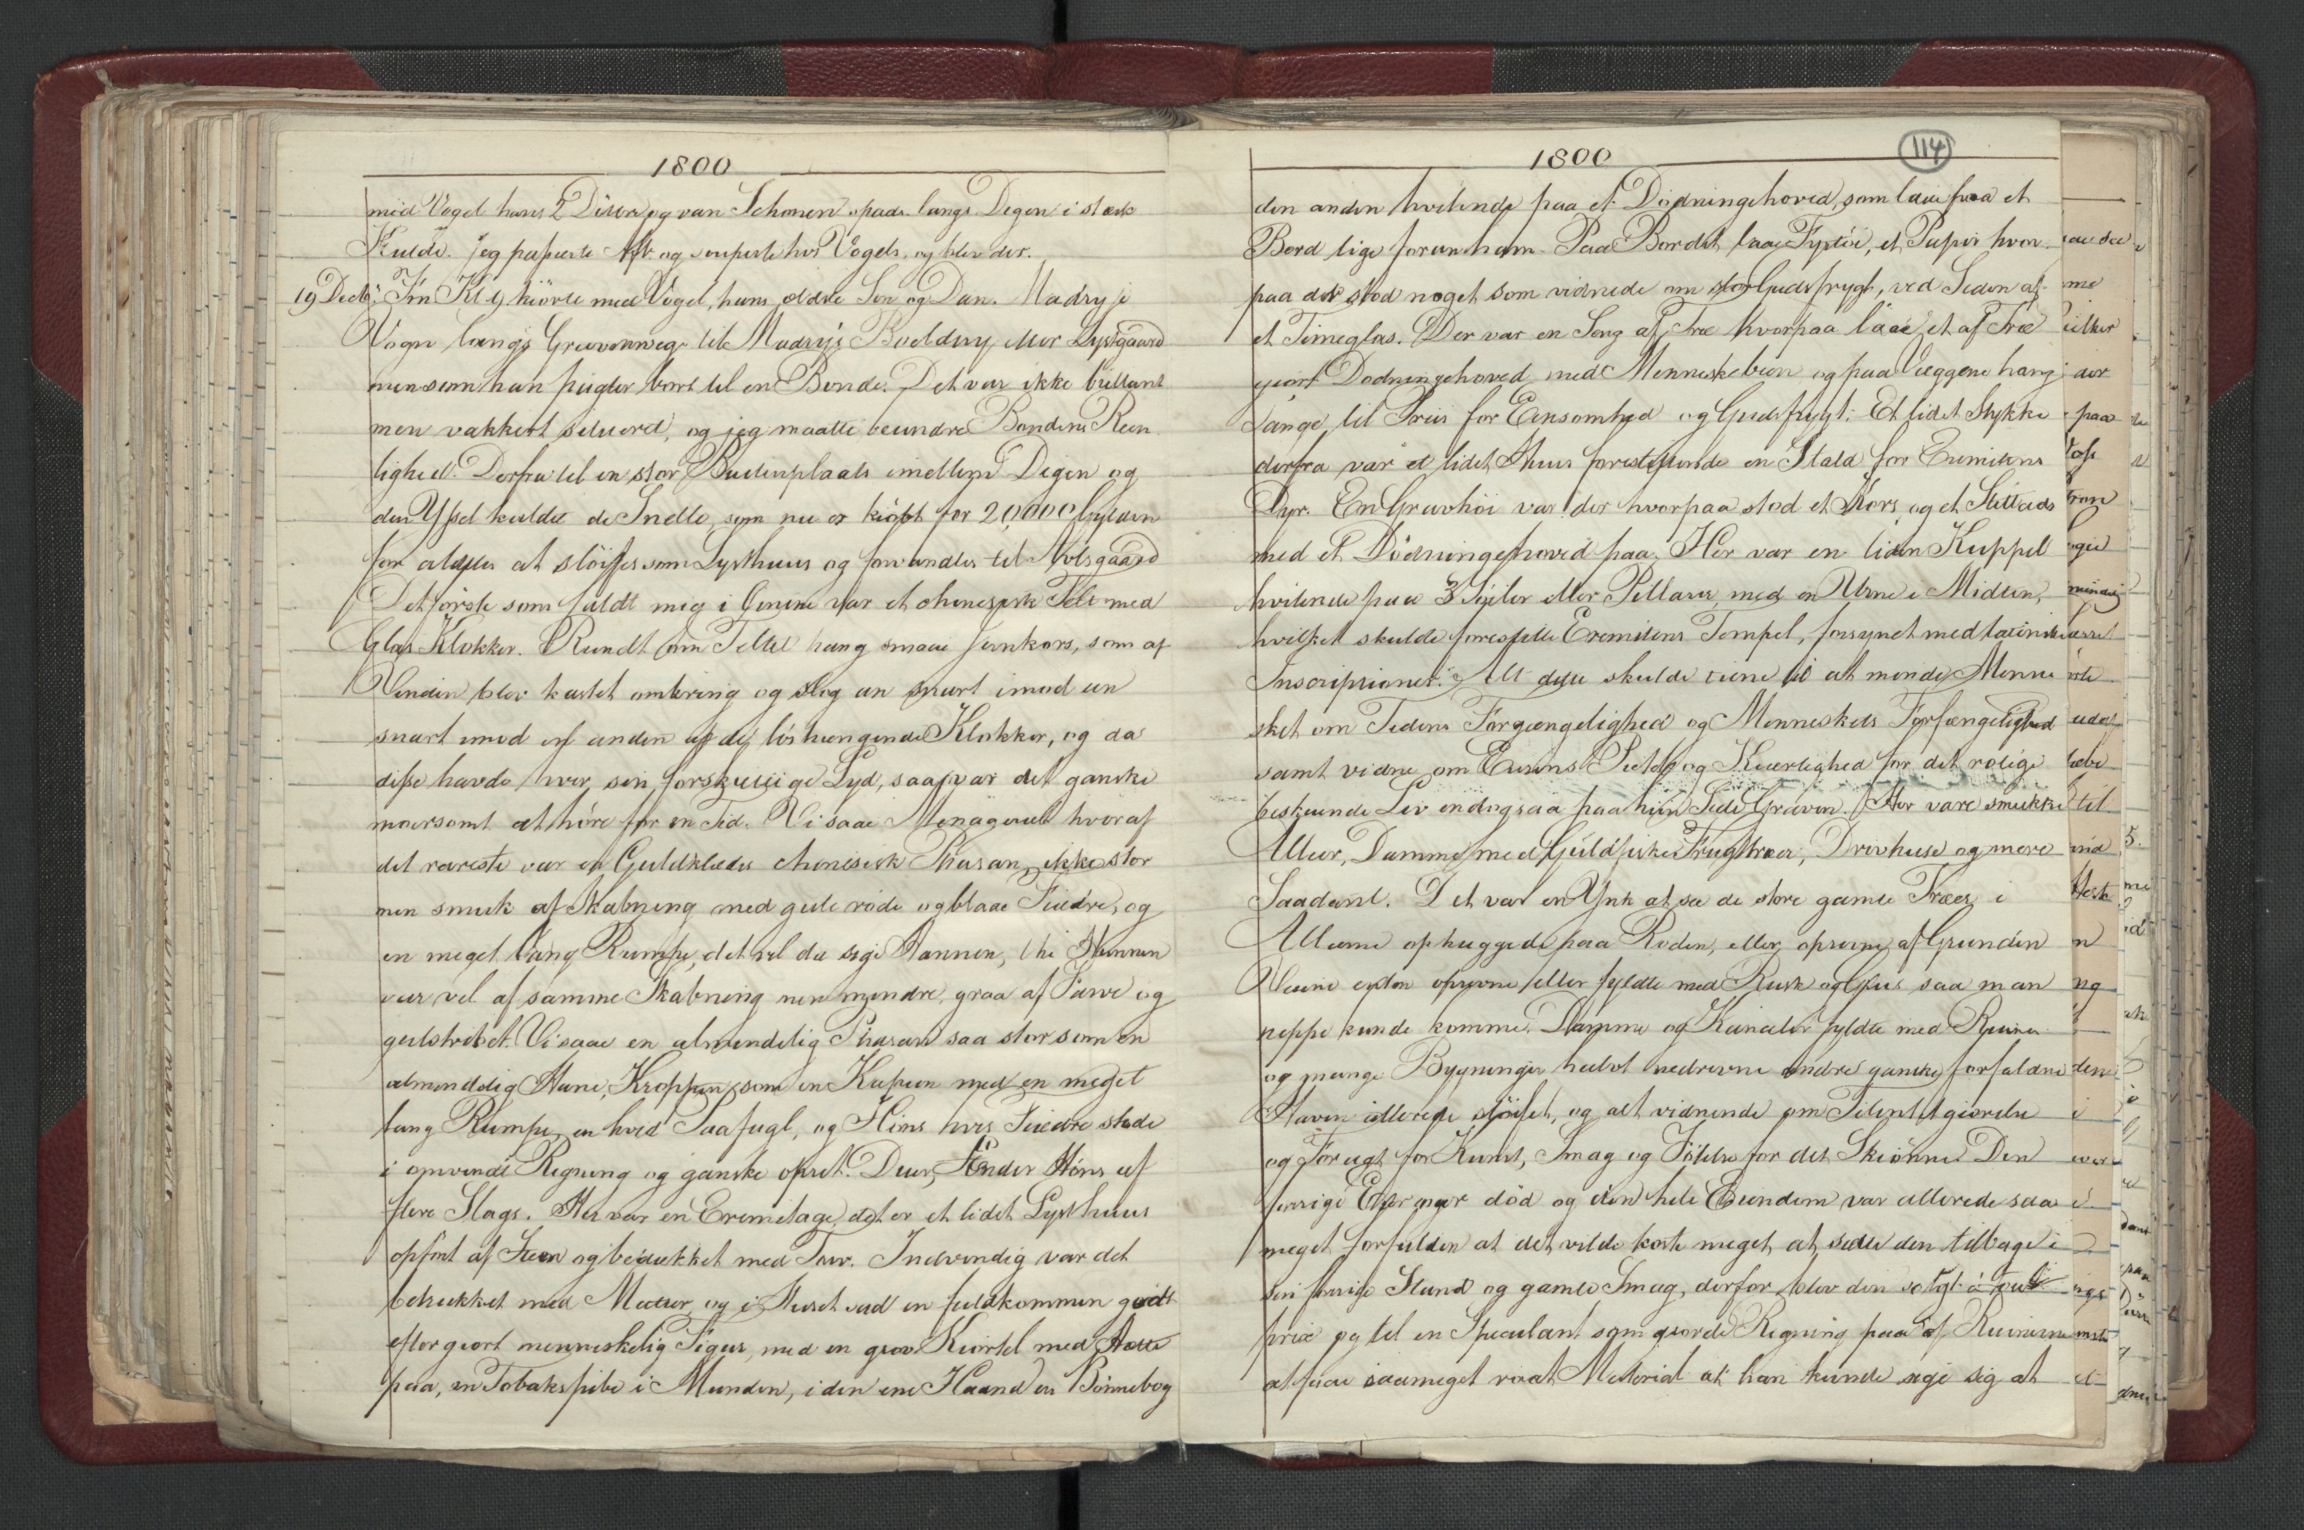 1800
med Vogel hans 2 Döttre og van Schonen spads. langs Degen i stærk
Kulde. Jeg passerte Aft. og souperte hos Vogels, og blev der.
19 Decb. Fm Kl 9 kiörte med Vogel, hans ældre Sön og Dan. Madry i
Vogn langs Gravenwege til Madry's Buelding eller Lystgaard
men som han pagter bort til en Bonde. Det var ikke brillant
men vakkert situeret, og jeg maatte beundre Bondens Reen
lighed. Derfra til en stor Buitenplaats imellem Degen og
den Yssel kaldet de Snelle, som nu er kiöbt for 20,000 Gylden
for aldeles at slöifes som Lysthuus og forvandles til Avlsgaard
Det förste som faldt mig i Öinene var et chinesisk Telt med
Glas Klokker. Rundt om Teltet hang smaae Jernkors, som af
Vinden blev kastet omkring og slog an snart imod een
snart imod en anden af de löshængende Klokker, og da
disse havde hver sin forskiellige Lyd, saa var det ganske
moersomt at höre for en Tid. Vi saae Menageriet hvoraf
det rareste var en Guldklædet chinesisk Phasan, ikke stor
men smuk af Skabning med gule röde og blaae Fiedre, og
en meget lang Rumpe, det vil da sige Hannen, thi Hunnen
var vel af samme Skabning men mindre, graa af Farve og
gulstribet. Vi saae en almindelig Phasan saa stor som en
almindelig Høne, Kroppen som en Kapun med en meget
lang Rumpe, en hvid Paafugl, og Höns hvis Fiedre stode
i omvendt Retning og ganske opret. Duer, Ænder Höns af
flere Slags. Her var en Eremitage, det er et lidet Lysthuus
opfört af Steen og bedækket med Tørv. Indvendig var det
behænket med Matter, og i Huset sad en fuldkommen godt
eftergiort menneskelig Figur, med en grov Kiortel med Hætte
paa, en Tobakspibe i Munden, i den ene Haand en Bönnebog
1800
114
den anden hvilende paa et Dödningehoved, som laae paa et
Bord lige foran ham. Paa Bordet laae Fyrtöi, et Papir hvor
paa der stod noget som vidnede om stor Gudsfrygt, ved Siden af
et Timeglas. Der var en Seng af Træ hvorpaa laae et af Træ
giort Dödningehoved med Menneskebeen og paa Væggene hang
Sange til Priis for Eensomhed og Gudsfrygt. Et lidet Stykke
derfra var et lidet Huus forestillende en Stald for Eremitens
Dyr. En Gravhöi var der hvorpaa stod et Kors og et Stillads
med et Dödningehoved paa. Her var en liden Kuppel
hvilende paa 3 Søiler eller Pillarer med en Urne i Midten,
hvilket skulde forestille Eremitens Tempel, forsynet med latinske
Inscriptioner. Alt dette skulde tiene til at minde Menne
sket om Tidens Forgængelighed og Menneskets Forfængelighed
samt vidne om Eierens Pietet og Kierlighed for det rolige
beskuende Liv endogsaa paa hiin Side Graven. Her vare smukke
Alleer, Damme med Guldfiske Frugttræer, Drivhuse og mere
Saadant. Det var en Ynk at see de store gamle Træer i
Alleerne ophuggede paa Roden, eller oprevne af Grunden
Veiene enten oprevne eller fyldte med Rusk og Grus saa man
neppe kunde komme. Damme og Kanaler fyldte med Ruiner
og mange Bygninger halvt nedrevne andre ganske forfaldne
Haven allerede slöifet, og alt vidnende om Tilintetgiörelse
og Foragt for Kunst, Smag og Fölelse for det Skiönne. Den
forrige Eier er död og den hele Eiendom var allerede saa
meget forfalden at det vilde koste meget at sætte den tilbage i
sin forrige Stand og gamle Smag, derfor blev den solgt à tout
prix og til en Speculant som giorde Regning paa af Ruinerne
at faae saa meget raat Material at han kunde sige sig at